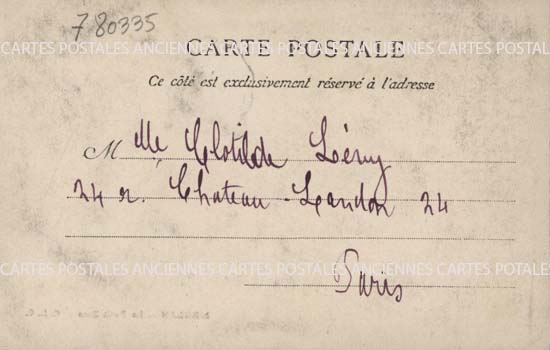 780335
CARTE POSTALE
CARTES POSTALES ANCIENNES CARTES POSTALES ANCIENNES CARTES POSTALES
Ce côté est exclusivement réservé à l'adresse
Mlle Clotilde
24 r. Chateau-Landon 24
CARTES POSTALES ANCIENNES CARTES POSTALES ANCIENNES CARTES POTALES
Paris